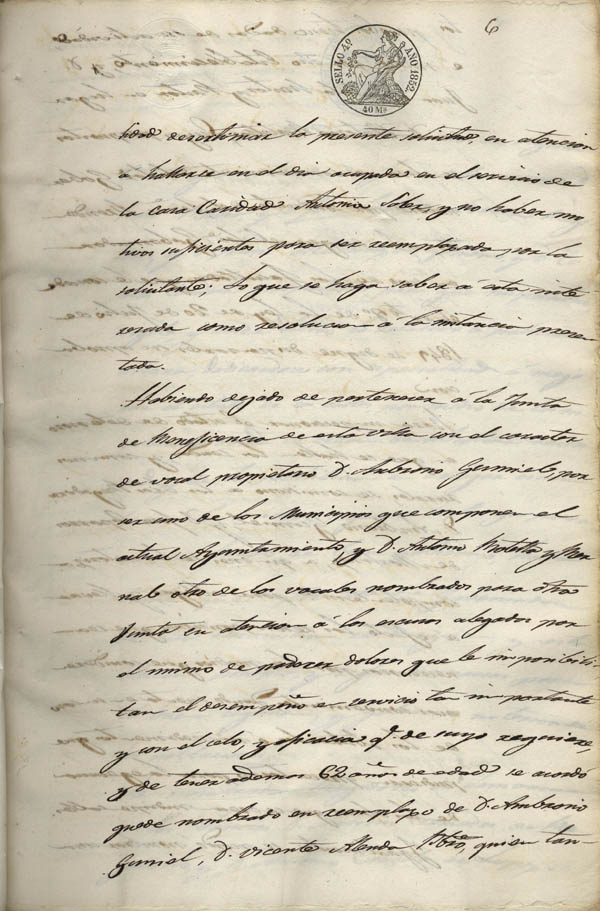 6
SELLO 4º AÑO 1852.
40 Ms
lidad desestimar la presente solicitud, en atencion
a hallarse en el dia ocupada en el servicio de
la casa Caridad Antonia Soler, y no haber mo
tivos suficientes para ser reemplazada por la
solicitante; lo que se haga saber á esta inte
resada como resolucion á la instancia presen
tada.
Habiendo dejado de pertenecer á la Junta
de Beneficencia de esta villa con el caracter
de vocal propietario D. Ambrosio Gumiel, por
ser uno de los Municipios que componen el
actual Ayuntamiento, y D. Antonio y Ber
nabe otro de los vocales nombrados para otra
Junta en atencion á los escusos alegados por
el mismo de padecer dolores que le imposibili
tan el desempeño en servicio tan importante
y con el celo, y eficacia q.e de suyo requiere,
y de tener ademas 62 años de edad se acordó
quede nombrado en reemplazo de D. Ambrosio
Gumiel, D. Vicente Alenda Pbro, quien tan-